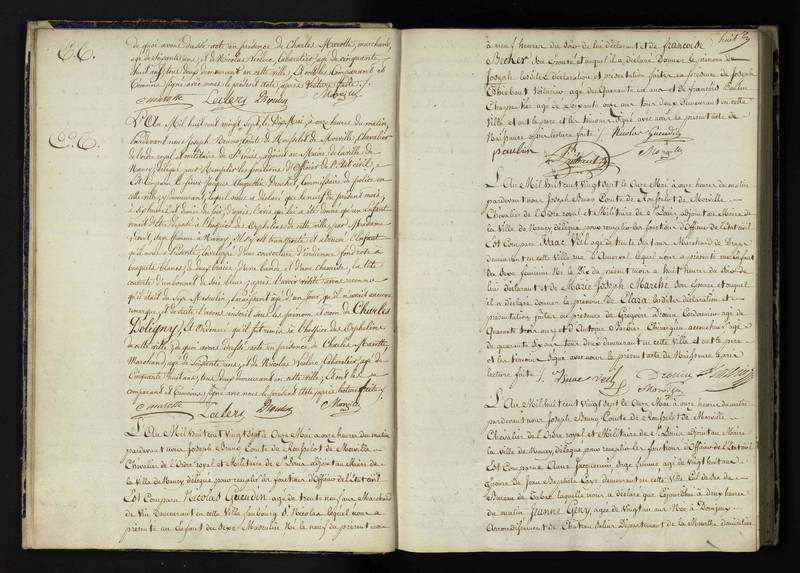 de quoi avons dressé acte en présence de Charles Marotte, marchand,
agé de soixante ans, et de Nicolas Victoire Cabaretier, agé de cinquante
huit ans, tous deux demeurant en cette ville, Et ont les Comparant et
témoins signé avec nous le présent acte après lecture faite.
marotte Leclerc
L'An Mil huit cent vingt sept le dix Mai, à onze heures du matin,
pardevant nous Joseph Bruno Comte de Rousselot de Morville, Chevalier
de l'ordre royal et militaire de St Louis, adjoint au Maire de la ville de
Nancy, délégué pour remplir les fonctions d'Officier de l'état civil,
Est Comparu le Sieur Jacques Augustin Commissaire de police en
cette ville, y demeurant, lequel nous a déclaré que le neuf du présent mois,
à sept heures et demie du soir, d'après l'avis qui lui a été donné qu'un enfant
venait d'être déposé à l'hospice des Orphelins de cette ville par Madame
femme à Nancy, Il s'y est transporté et a trouvé l'Enfant
qu'il nous a présenté, enveloppé d'une couverture d'indienne fond rose à
bouquets blancs, de deux draps, d'une bande et d'une chemise, la tête
couverte d'un bonnet de soie bleu; après l'avoir visité avons reconnu
qu'il était du Sexe Masculin, paraissant agé d'un Jour, qu'il n'avait aucune
remarque; de suite l'avons inscrit sous les prénom et nom de Charles
Doligny, Et Ordonné qu'il fut remis à l'hospice des Orphelins
de cette ville; de quoi avons dressé acte en présence de Charles Marotte
Marchand, agé de soixante ans, et de Nicolas Victoire Cabaretier, agé de
Cinquante huit ans, tous deux demeurant en cette ville, Et ont les
comparant et témoins signé avec nous le présent Acte, après lecture faite.
marotte Leclerc
L'An Mil huit cent Vingt Sept le Onze Mai à onze heures du matin
pardevant nous Joseph Bruno Comte de Rousselot de Morville
Chevalier de l'Ordre royal et Militaire de St Louis adjoint au Maire de
la Ville de Nancy délégué pour remplir les fonctions d'Officier de l'Etat Civil
Est Comparu Nicolas Gueudin agé de trente neuf ans Marchand
de Vin Demeurant en cette Ville faubourg St Nicolas lequel nous a
présenté un Enfant du Sexe Masculin Né le neuf du présent mois
à neuf heures du Soir de lui déclarant et de françoise
Becker son Epouse et auquel il a déclaré donner le prénom de
Joseph lesdites déclaration et présentation faites en présence de Joseph
Thiebaut Voiturier agé de quarante six ans et de François Paulin
Chapentier agé de Soixante onze ans tous deux demeurant en cette
Ville et ont le père et les témoins signé avec nous le présent acte de
Naissance après lecture faite. Nicolas Gueudin
paulin thiebaut
L'An Mil huit cent Vingt Sept le Onze Mai à onze heures du matin
pardevant nous Joseph Bruno Comte de Rousselot de Morville
Chevalier de l'Ordre royal et Militaire de St Louis adjoint au Maire de
la Ville de Nancy délégué pour remplir les fonctions d'Officier de l'Etat Civil
Est Comparu Isaac Veil agé de trente six ans Marchand de
demeurant en cette Ville rue lequel nous a présenté un Enfant
du Sexe féminin Né le Dix du présent mois à huit heures du Soir de
lui déclarant et de Marie Joseph Marche Son Epouse et auquel
il a déclaré donner le prénom de Clara lesdites déclaration et
présentation faites en présence de Gregoire Drouin Cordonnier agé de
Quarante trois ans et d'Antoine Chirurgien accoucheur agé
de quarante six ans tous deux demeurant en cette Ville et ont le père
et les témoins signé avec nous le présent acte de Naissance après
lecture faite. Veil Drouin
L'An Mil huit cent Vingt Sept le Onze Mai à onze heures du matin
pardevant nous Joseph Bruno Comte de Rousselot de Morville
Chevalier de l'Ordre royal et Militaire de St Louis adjoint au Maire
la Ville de Nancy, délégué pour remplir les fonctions d'Officier de l'Etat Civil
Est Comparue Claire Jacquemin Sage femme, agée de Vingt huit ans
Epouse de Jean Baptiste demeurant en cette Ville
Bureau de Tabac laquelle nous a déclaré que aujourd'hui à deux heures
du matin Jeanne Geny, agée de Vingt un ans Née à
Arrondissement de Chateau Salins Département de la Meurthe domiciliée